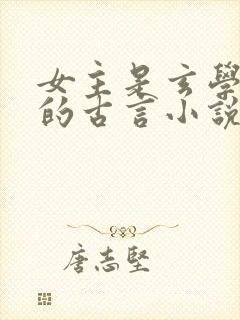 女主是玄學
的古言小說
唐志堅